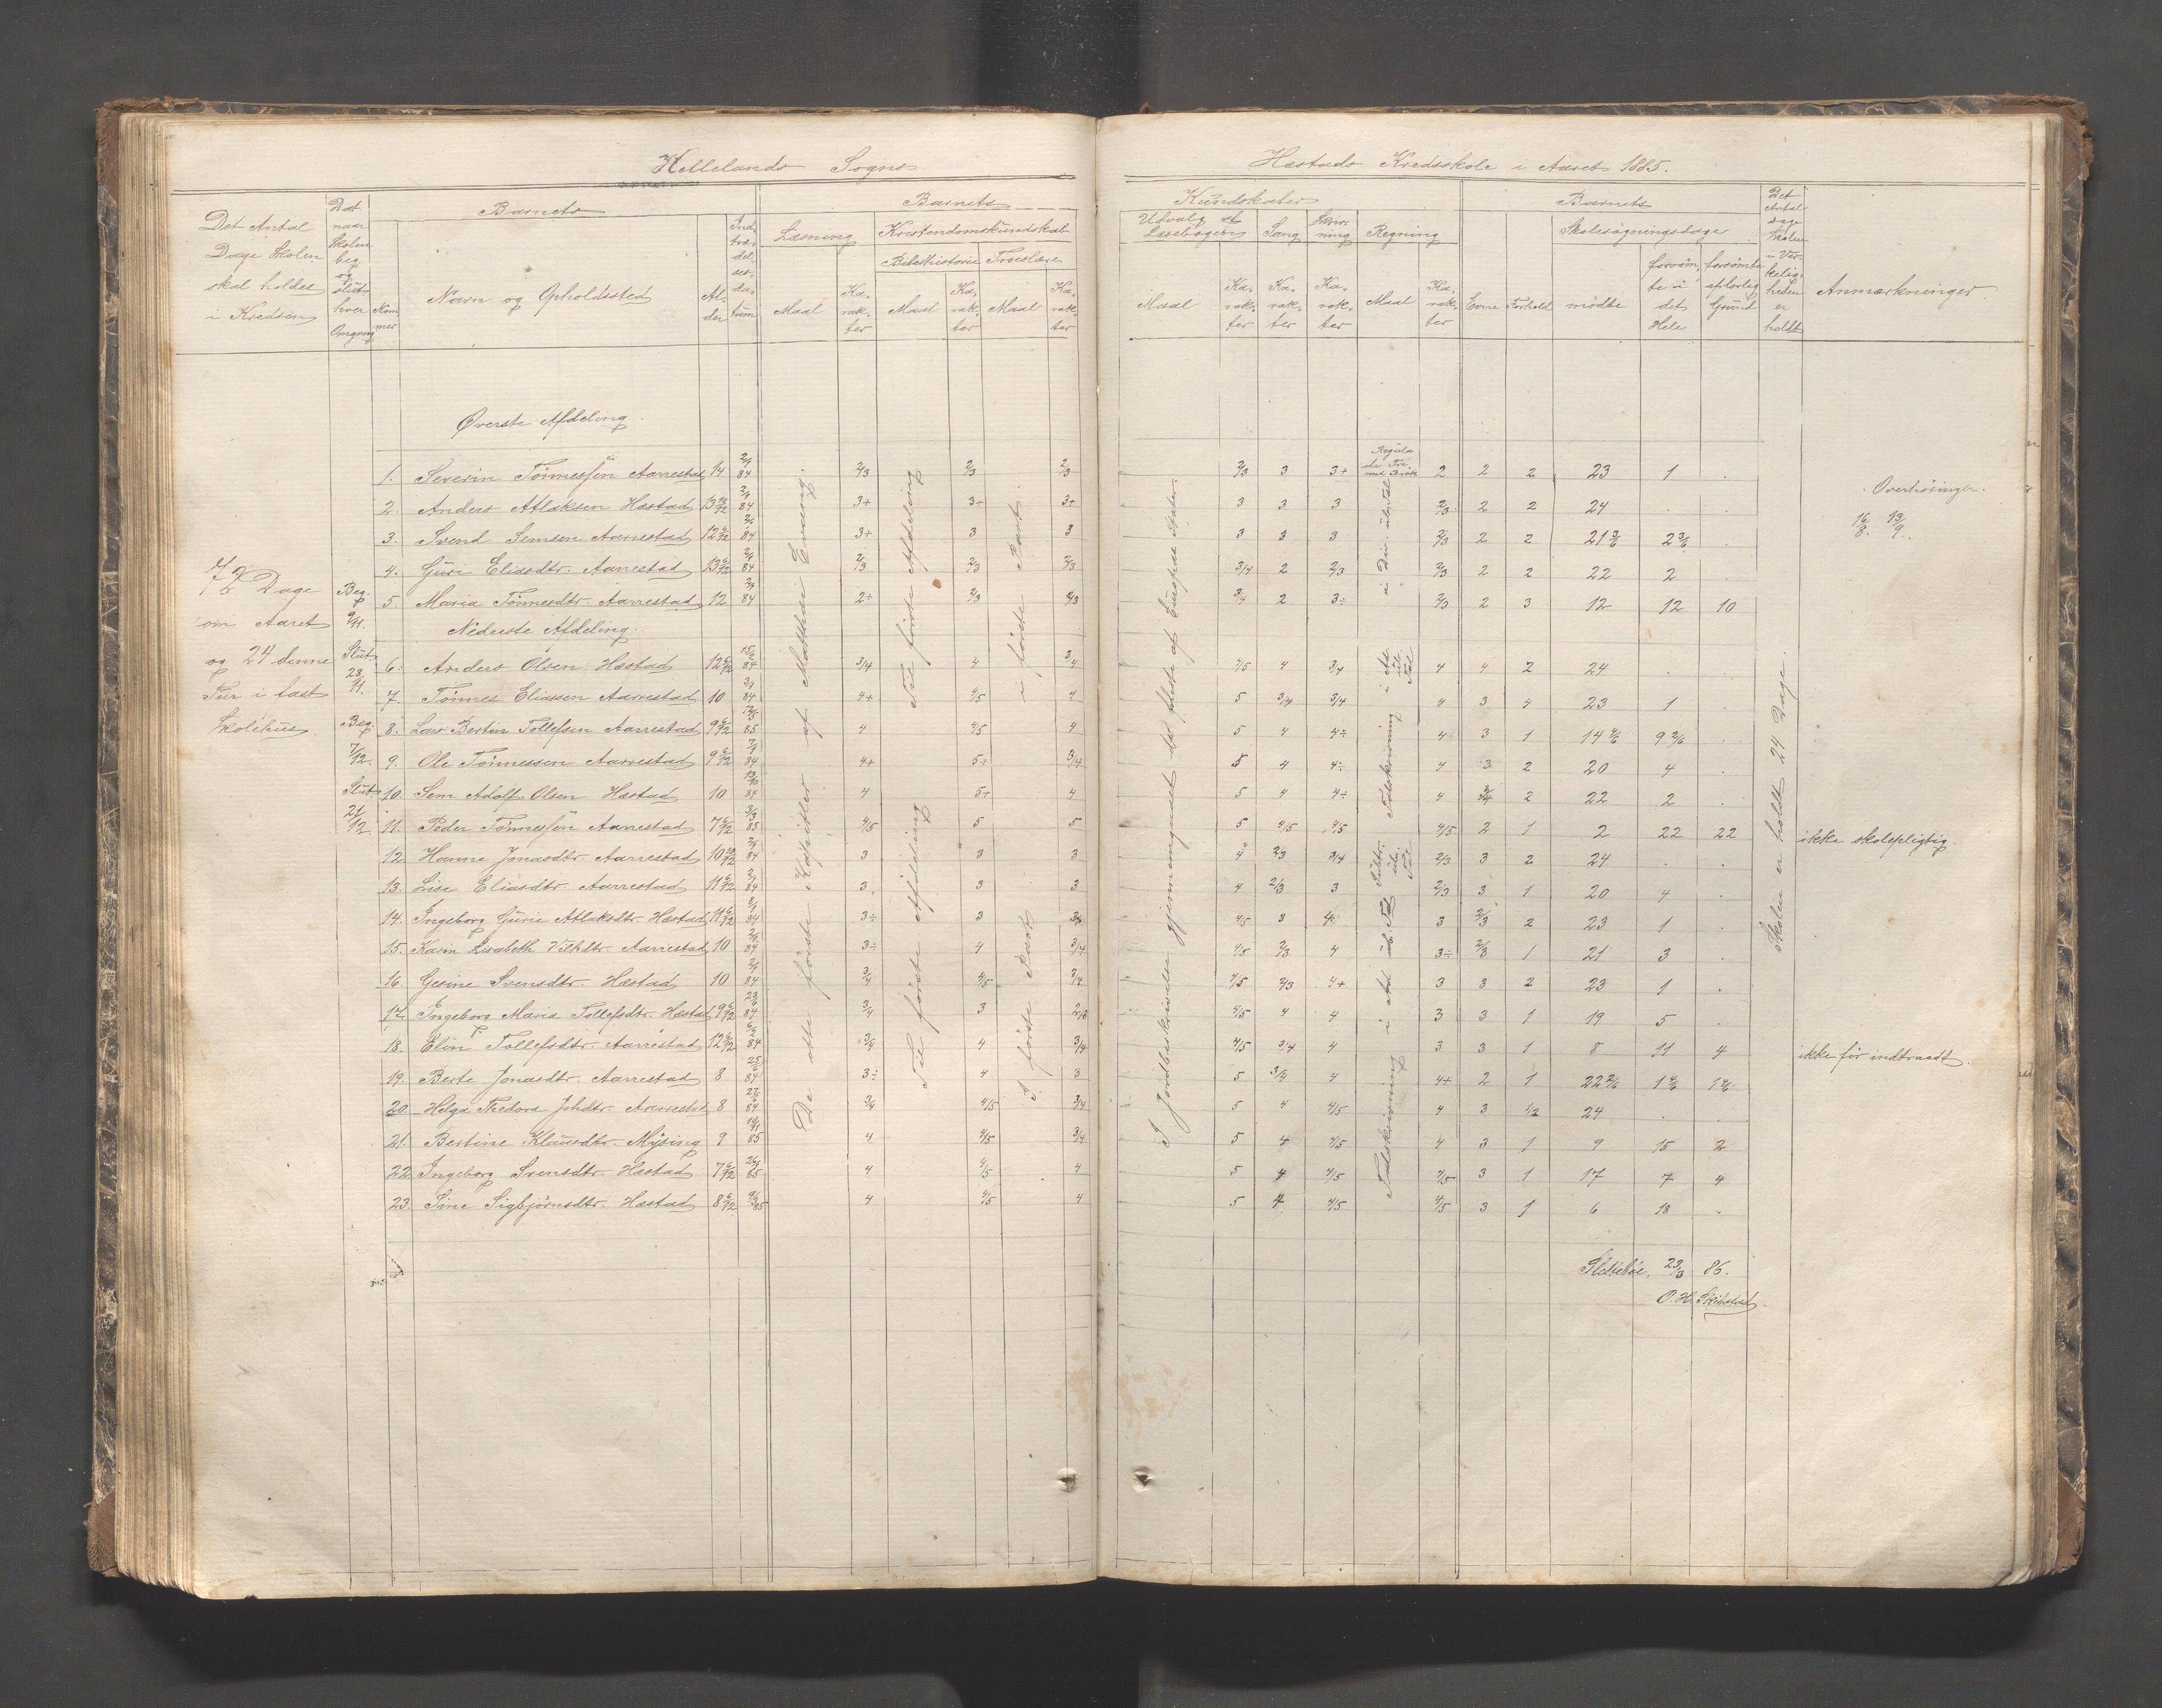 Hellelands Sogns
Hæstads Kredsskole i Aaret 1885.
Det Antal Dage Skolen skal holdes i Kredsen
Dat. naar Skolen beg. og slut. hver Omgang
Barnets
Nummer
Navn og Opholdssted
Alder
Indtrædelsesdatum
Barnets
Læsning
Kristendomskundskab
Bibelhistorie
Troeslære
Maal Karakter Maal Karakter Maal Karakter
Kundskaber
Udvalg af Læsebogen
Sang
Skrivning
Regning
Maal Karakter Karakter Karakter Maal Karakter
Barnets
Evne Forhold
Skolesøgningsdage
mødte
forsømte i det Hele
forsømte af lovlig Grund
Det Antal Dage Skolen i Virkeligheden er holdt
Anmærkninger
Øverste Afdeling.
1. Severin Tønnessen Aarrestad 14 2/1 84 2/3 2/3 2/3 2/3 3 3+ 2 2 2 23 1 .
2. Anders Atlaksen Hæstad 13 10/12 2/1 84 3+ 3+ 3+ 3 3 3 2/3 2 2 24 . .
3. Svend Semsen Aarrestad 12 6/12 2/1 84 3+ 3 3 3 3 3 2/3 2 2 21 3/6 2 3/6 .
4. Guri Eliasdtr. Aarrestad 13 6/12 2/1 84 2/3 2/3 2/3 3/4 2 2/3 2/3 2 2 22 2 .
5. Maria Tønnesdtr. Aarrestad 12 2/1 84 2÷ 2/3 2/3 3/4 2 3÷ 2/3 2 3 12 12 10
Nederste Afdeling.
6. Anders Olsen Hæstad 12 6/12 84 3/4 4 3/4 4/5 4 3/4 4 4 2 24 . .
7. Tønnes Eliassen Aarrestad 10 84 4+ 4/5 4 5 3/4 3/4 4 3 4 23 1 .
8. Lars Bertin Tollefsen Aarrestad 9 6/12 85 4 4/5 4 5 4 4÷ 4 3 1 14 4/6 9 2/6 .
9. Ole Tønnessen Aarrestad 9 6/12 7/1 84 4+ 5+ 3/4 5 4 4÷ 4 3 2 20 4 .
10. Sem Adolf Olsen Hæstad 10 84 4 5+ 4 5 4 4÷ 4 3/4 2 22 2 .
11. Peder Tønnessen Aarrestad 7 6/12 3/3 85 4/5 5 5 5 4/5 4/5 4/5 2 1 2 22 22 ikke skolepligtig.
12. Hanne Jonasdtr. Aarrestad 10 10/12 2/1 84 3 3 3 4 2/3 3/4 2/3 3 2 24 . .
13. Lise Eliasdtr. Aarrestad 11 6/12 2/1 84 3 3 3 4 2/3 3 2/3 3 1 20 4 .
14. Ingeborg Gurie Atlaksdtr. Hæstad 11 6/12 8/1 84 3÷ 3 3/4 4/5 3 4 3 2/3 2 23 1 .
15. Karn Lisabeth Vilhdtr. Aarrestad 10 2/1 84 3÷ 4 3/4 4/5 2/3 4 3÷ 2/3 1 21 3 .
16. Gesine Svensdtr. Hæstad 10 2/1 84 3/4 4/5 3/4 4/5 2/3 4+ 3 3 2 23 1 .
17. Ingeborg Maria Tollefsdtr. Hæstad 9 6/12 84 3/4 3 2/3 4/5 4 4 3 3 1 19 5 .
18. Elin Tollefsdtr. Aarrestad 12 6/12 84 3/4 4 3/4 4/5 3/4 4 3 3 1 8 11 4 ikke før indtraadt.
19. Berte Jonasdtr. Aarrestad 8 84 3÷ 4 3 5 3/4 4 4+ 2 1 22 2/6 1 4/6 1 4/6
20. Helga Thedora Johdtr. Aarrestad 8 84 3/4 4/5 3/4 5 4 4/5 4 3 1/2 24 . .
21. Bertine Klausdtr. Mysing 9 85 4 4/5 3/4 5 4 4/5 4 3 1 9 15 2
22. Ingeborg Svensdtr. Hæstad 7 6/12 85 4 4/5 4 5 4 4/5 4/5 3 1 17 7 4
23. Sine Sigbjørnsdtr. Hæstad 8 6/12 85 4 4/5 4 5 4 4/5 4/5 3 1 6 18 .
72 Dage
om Aaret
og 24 denne
Tur i fast
Skolehus.
Beg.
9/11.
Slut.
28/11.
Beg.
7/12.
Slut.
21/12
De otte første Kapitler af Matthæi Evang.
Til første Afdeling
Til første Afdeling
i første Part.
I første Part
I Jordbeskrivelse gjennemgaaet det første af Europas Stater.
Regula de Tri med Brøk
i Div. uben. Tal
Talskrivning i Ad. ub. Tal
Subtr. ub. Tal
Talskrivning i Ad. ub. Tal
Skolen er holdt 24 Dage.
Overhøringer.
16/8. 13/9.
Slettebøe, 23/3 86.
O. H. Skibstad.